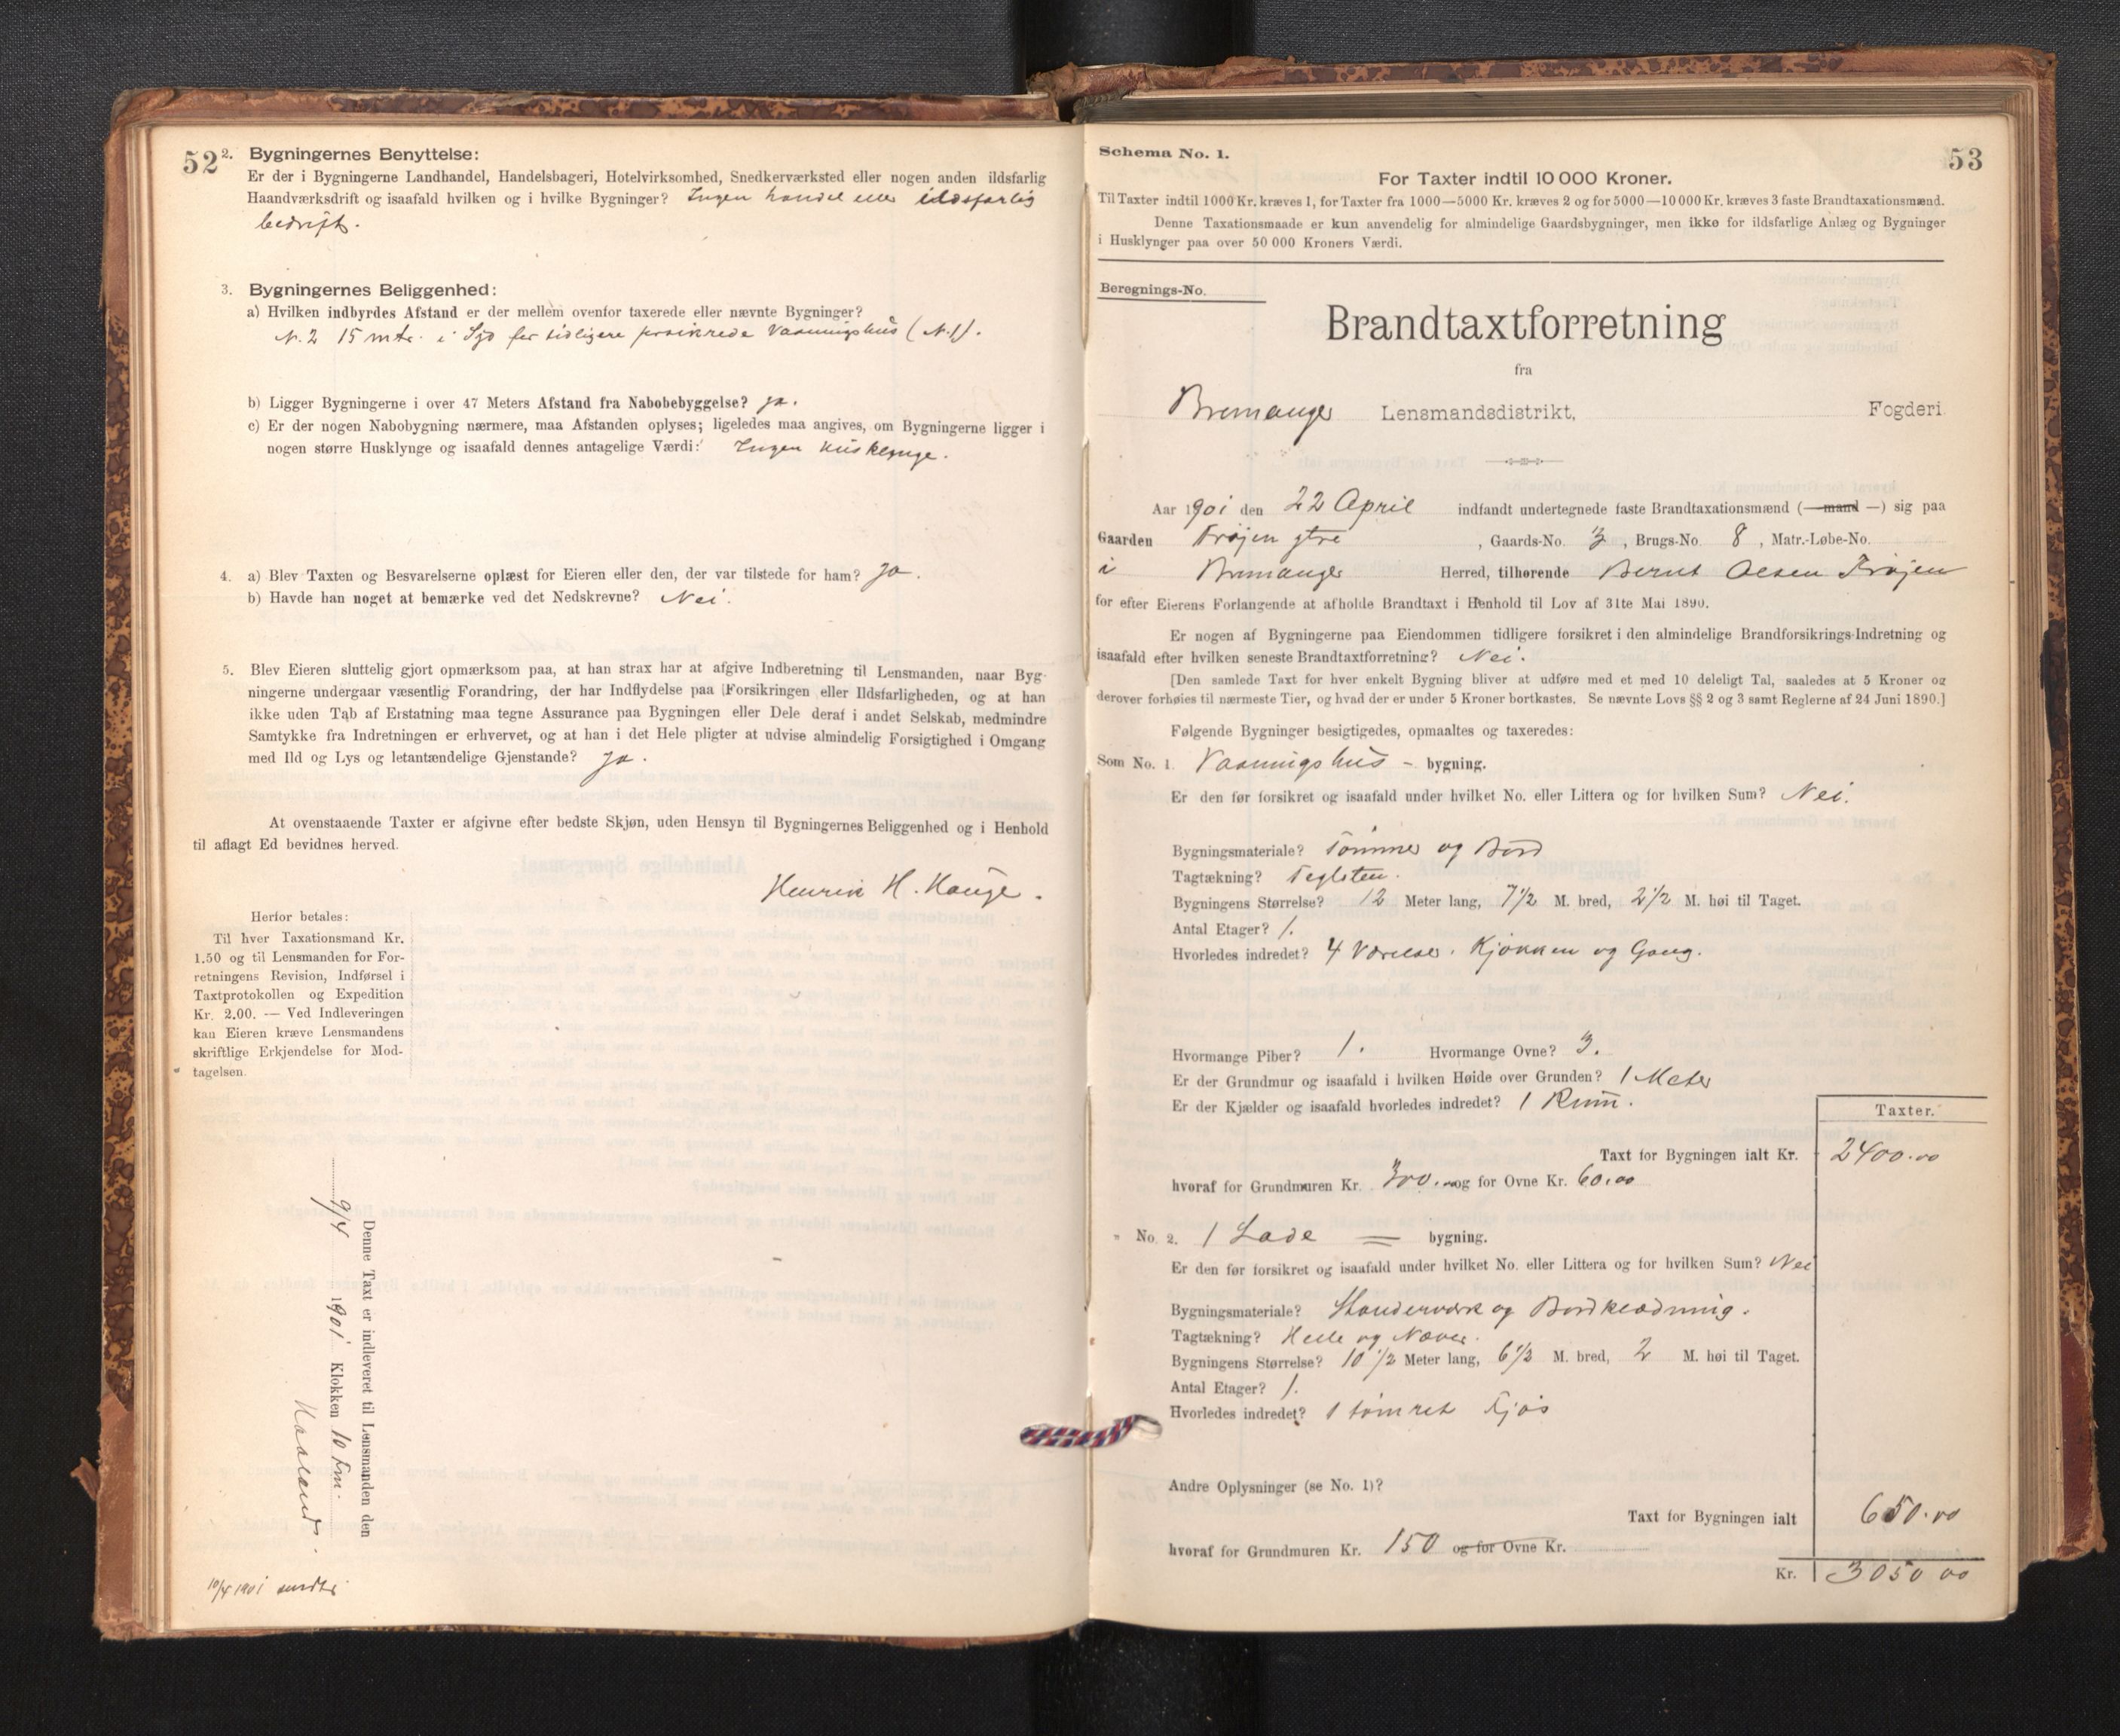 52
2. Bygningernes Benyttelse:
Er der i Bygningerne Landhandel, Handelsbageri, Hotelvirksomhed, Snedkerværksted eller nogen anden ildsfarlig
Haandværksdrift og isaafald hvilken og i hvilke Bygninger? Ingen handel eller ildsfarlig
bedrift.
3. Bygningernes Beliggenhed:
a) Hvilken indbyrdes Afstand er der mellem ovenfor taxerede eller nævnte Bygninger?
N. 2 15 mtr. i Syd for tidligere Vaaningshus (N. 1).
b) Ligger Bygningerne i over 47 Meters Afstand fra Nabobebyggelse? ja.
c) Er der nogen Nabobygning nærmere, maa Afstanden oplyses; ligeledes maa angives, om Bygningerne ligger i
nogen større Husklynge og isaafald dennes antagelige Værdi: Ingen Husklynge.
4. a) Blev Taxten og Besvarelserne oplæst for Eieren eller den, der var tilstede for ham? Ja.
b) Havde han noget at bemærke ved det Nedskrevne? Nei.
5. Blev Eieren sluttelig gjort opmærksom paa, at han strax har at afgive Indberetning til Lensmanden, naar Byg-
ningerne undergaar væsentlig Forandring, der har Indflydelse paa Forsikringen eller Ildsfarligheden, og at han
ikke uden Tab af Erstatning maa tegne Assurance paa Bygningen eller Dele deraf i andet Selskab, medmindre
Samtykke fra Indretningen er erhvervet, og at han i det Hele pligter at udvise almindelig Forsigtighed i Omgang
med Ild og Lys og letantændelige Gjenstande? Ja.
At ovenstaaende Taxter er afgivne efter bedste Skjøn, uden Hensyn til Bygningernes Beliggenhed og i Henhold
til aflagt Ed bevidnes herved.
Henrik H. Hauge.
Herfor betales:
Til hver Taxationsmand Kr.
1.50 og til Lensmanden for For-
retningens Revision, Indførsel i
Taxtprotokollen og Expedition
Kr. 2.00. — Ved Indleveringen
kan Eieren kræve Lensmandens
skriftlige Erkjendelse for Mod-
tagelsen.
Denne Taxt er indleveret til Lensmanden den
9/4 1901 Klokken 10 Fm.
Haaland.
10/4 1901 sendt
53
Schema No. 1.
For Taxter indtil 10 000 Kroner.
Til Taxter indtil 1000 Kr. kræves 1, for Taxter fra 1000—5000 Kr. kræves 2 og for 5000—10 000 Kr. kræves 3 faste Brandtaxationsmænd.
Denne Taxationsmaade er kun anvendelig for almindelige Gaardsbygninger, men ikke for ildsfarlige Anlæg og Bygninger
i Husklynger paa over 50 000 Kroners Værdi.
Beregnings-No.
Brandtaxtforretning
fra
Bremanger Lensmandsdistrikt, Fogderi
Aar 1901 den 22 April indfandt undertegnede faste Brandtaxationsmænd (—mand—) sig paa
Gaarden Frøjen ytre, Gaards-No. 3, Brugs-No. 8, Matr.-Løbe-No.
i Bremanger Herred, tilhørende Bernt Olsen Frøjen
for efter Eierens Forlangende at afholde Brandtaxt i Henhold til Lov af 31te Mai 1890.
Er nogen af Bygningerne paa Eiendommen tidligere forsikret i den almindelige Brandforsikrings-Indretning og
isaafald efter hvilken seneste Brandtaxtforretning? Nei.
[Den samlede Taxt for hver enkelt Bygning bliver at udføre med et med 10 deleligt Tal, saaledes at 5 Kroner og
derover forhøies til nærmeste Tier, og hvad der er under 5 Kroner bortkastes. Se nævnte Lovs §§ 2 og 3 samt Reglerne af 24 Juni 1890.]
Følgende Bygninger besigtigedes, opmaaltes og taxeredes:
Som No. 1. Vaaningshus - bygning.
Er den før forsikret og isaafald under hvilket No. eller Littera og for hvilken Sum? Nei.
Bygningsmateriale? Tømmer og Bord
Tagtækning? Teglsten.
Bygningens Størrelse? 12 Meter lang, 7 1/2 M. bred, 2 1/2 M. høi til Taget.
Antal Etager? 1.
Hvorledes indredet? 4 Værelser, Kjøkken og Gang.
Hvormange Piber? 1. Hvormange Ovne? 3.
Er der Grundmur og isaafald i hvilken Høide over Grunden? 1 Meter
Er der Kjælder og isaafald hvorledes indredet? 1 Rum.
Taxter.
Taxt for Bygningen ialt Kr. 2400.00
hvoraf for Grundmuren Kr. 300.00 og for Ovne Kr. 60.00
" No. 2. 1 Lade = bygning.
Er den før forsikret og isaafald under hvilket No. eller Littera og for hvilken Sum? Nei
Bygningsmateriale? Standerværk og Bordklædning.
Tagtækning? Helle og Næver.
Bygningens Størrelse? 10 1/2 Meter lang, 6 1/2 M. bred, 2 M. høi til Taget.
Antal Etager? 1.
Hvorledes indredet? 1 tømret Fjøs
Andre Oplysninger (se No. 1)?
Taxt for Bygningen ialt 650.00
hvoraf for Grundmuren Kr. 150 og for Ovne Kr.
Kr. 3050 00